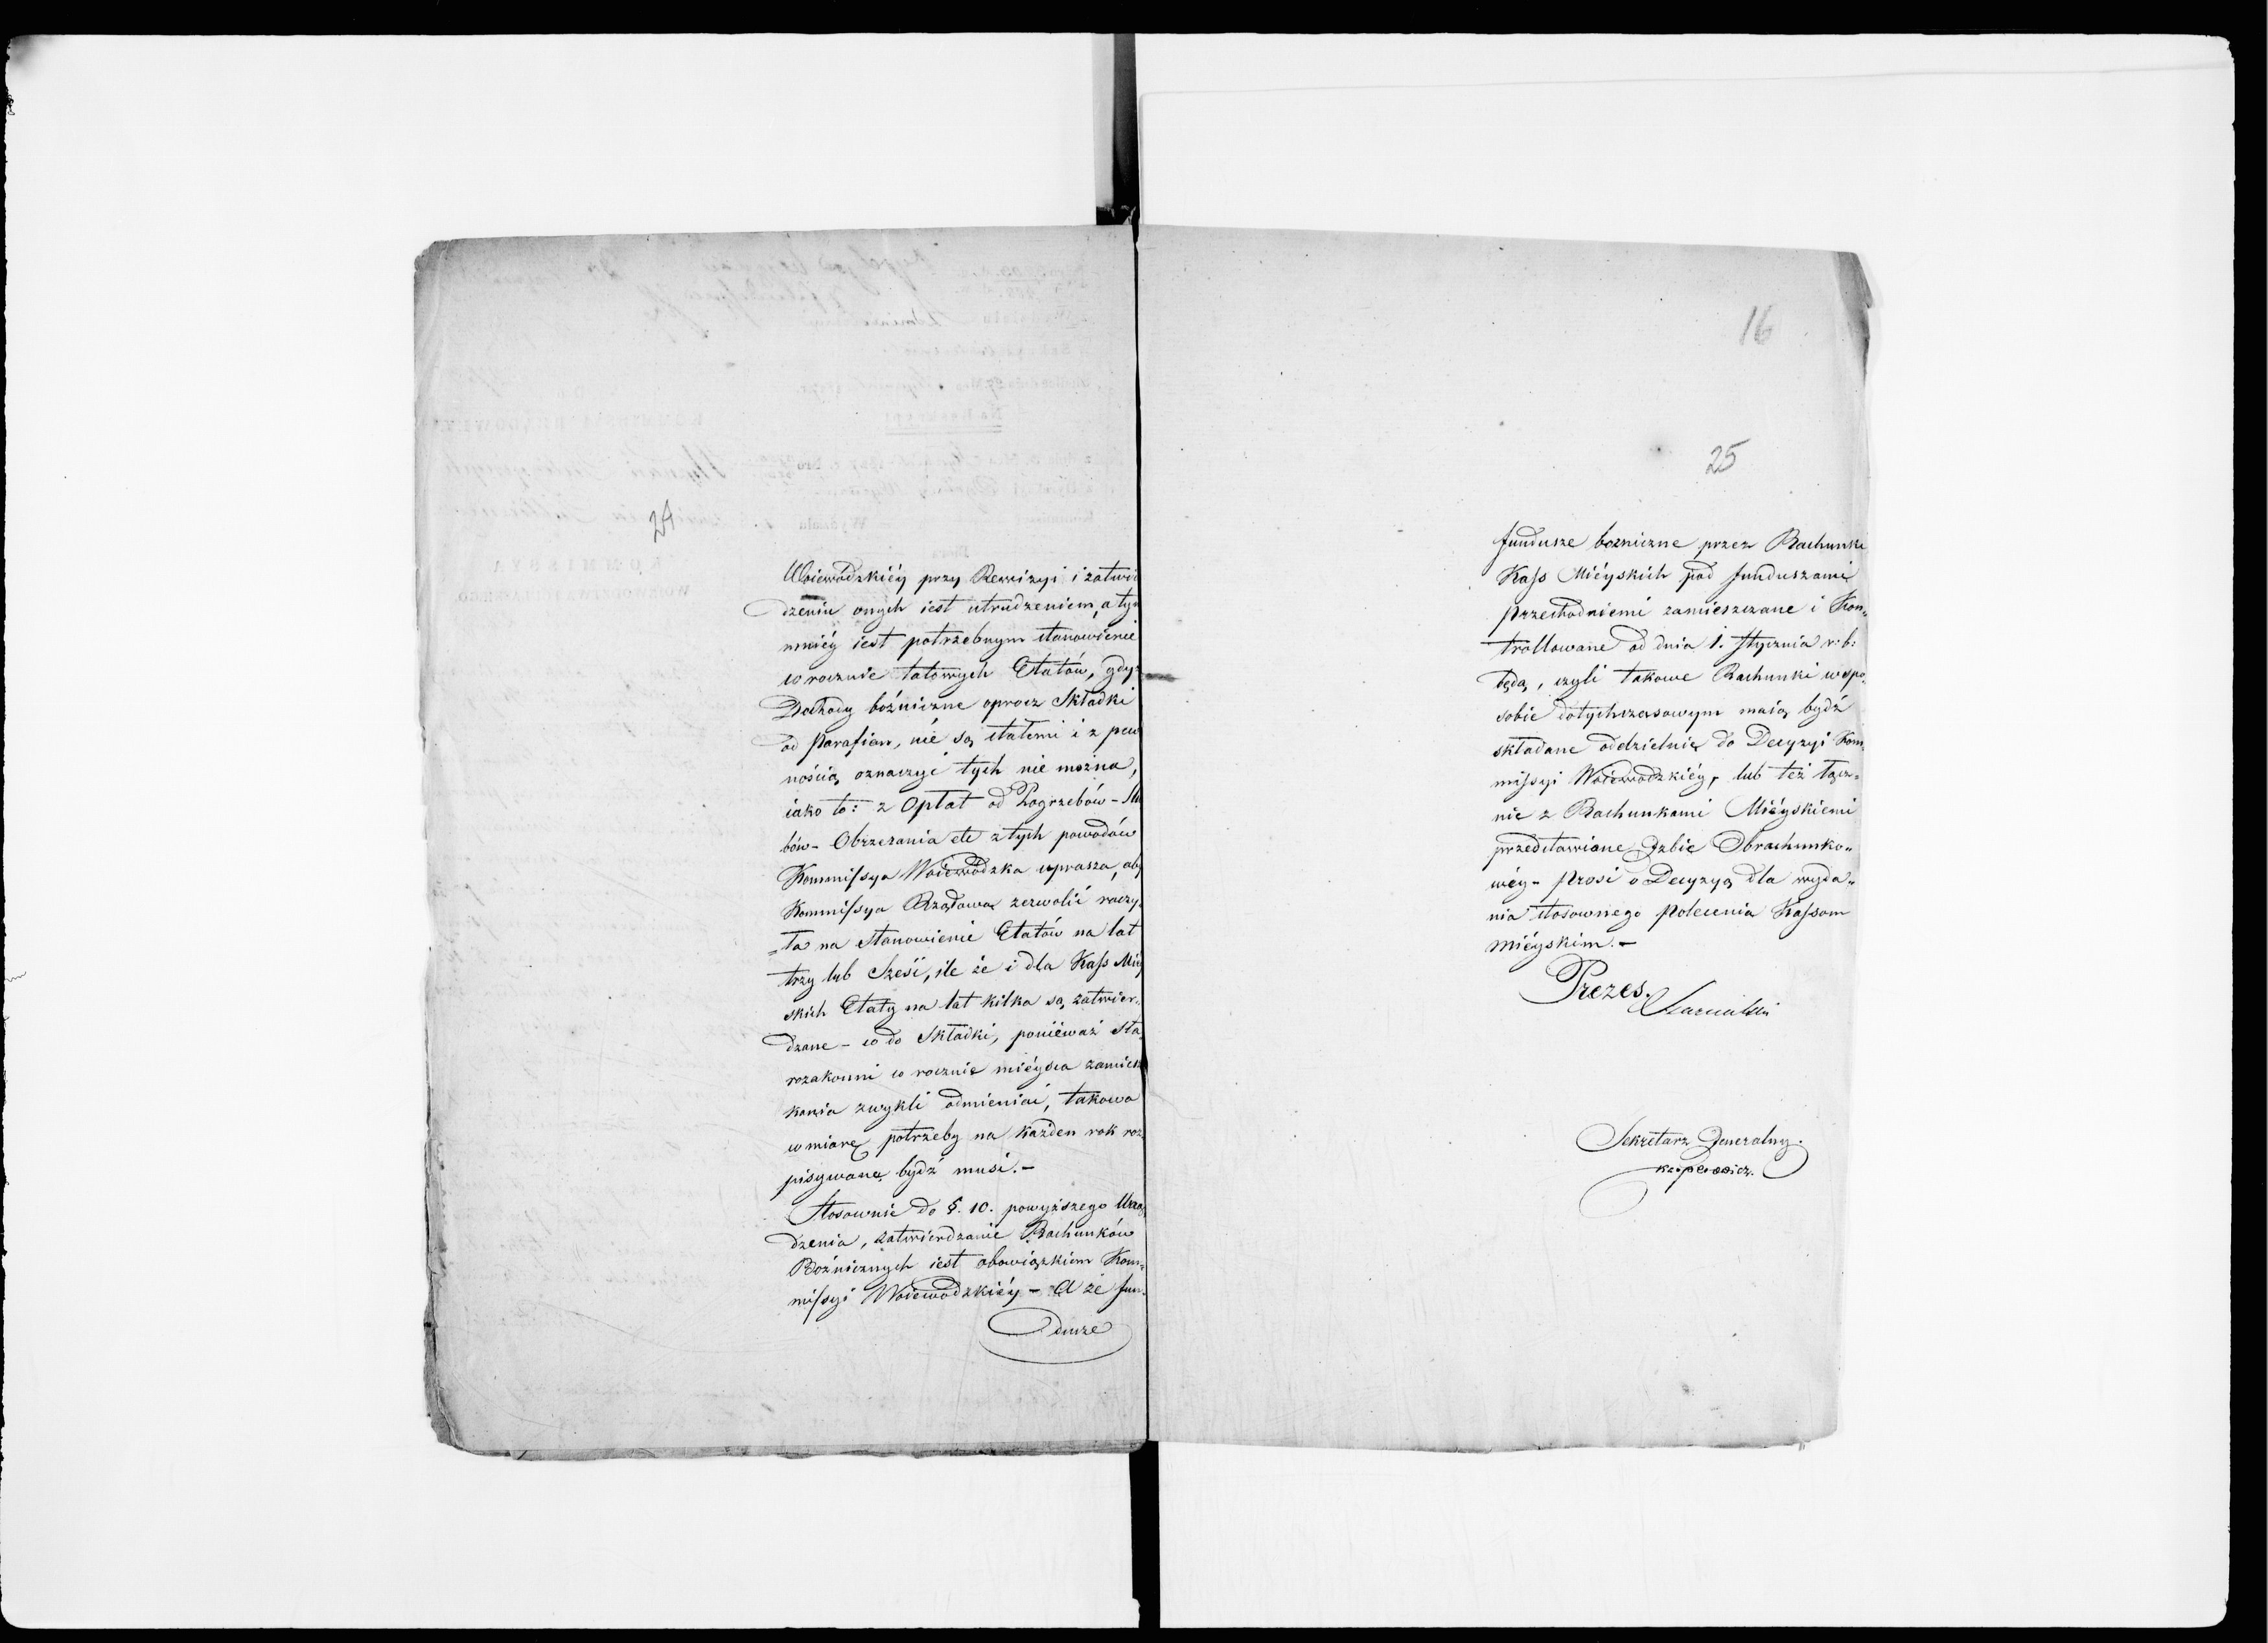 24
Woiewódzkiéy przy Rewizyi i zatwi
dzeniu onych iest utrudzeniem, a ty
mniéy iest potrzebnym stanowienie
corocznie takowych Etatów, gdyż
Dochody bóźniczne oprocz Składki
od Parafian, nie są stałemi i z pew
nością oznaczyć tych nie można,
iako to: z Opłat od Pogrzebów – Slu
bów – Obrzezania etc z tych powodów
Kommissya Woiewódzka uprasza, aby
Kommissya Rządowa zezwolić raczy
ła na stanowienie Etatów na lat
trzy lub Sześć, ile że i dla Kass Miéy
skich Etaty na lat kilka są zatwier„
dzane – co do Składki, poniéważ Sta
rozakonni co rocznie miéysca zamiesz
kania zwykli odmieniać, takowa
w miarę potrzeby na każden rok roz
pisywaną bydź musi. –
Stosownie do §. 10. powyższego Urzą
dzenia, zatwierdzanie Rachunków
Bóżnicznych iest obowiązkiem Kom„
missyi Woiewodzkiéy – A że fun„
dusze
16
25
fundusze bozniczne przez Rachunki
Kass Miéyskich pod funduszami
przechodniemi zamieszczane i Kon„
trollowane od dnia 1. Stycznia r: b:
będą, czyli takowe Rachunki w spo„
sobie dotychczasowym maią bydź
składane oddzielnie do Decyzyi Kom„
missyi Woiewodzkiéy, lub też łącz„
nie z Rachunkami Miéyskiemi
przedstawiane Izbie Obrachunko„
wéy – Prosi o Decyzyą dla wyda„
nia stosownego polecenia Kassom
Miéyskim. –
Prezes.
Sekretarz Jeneralny.